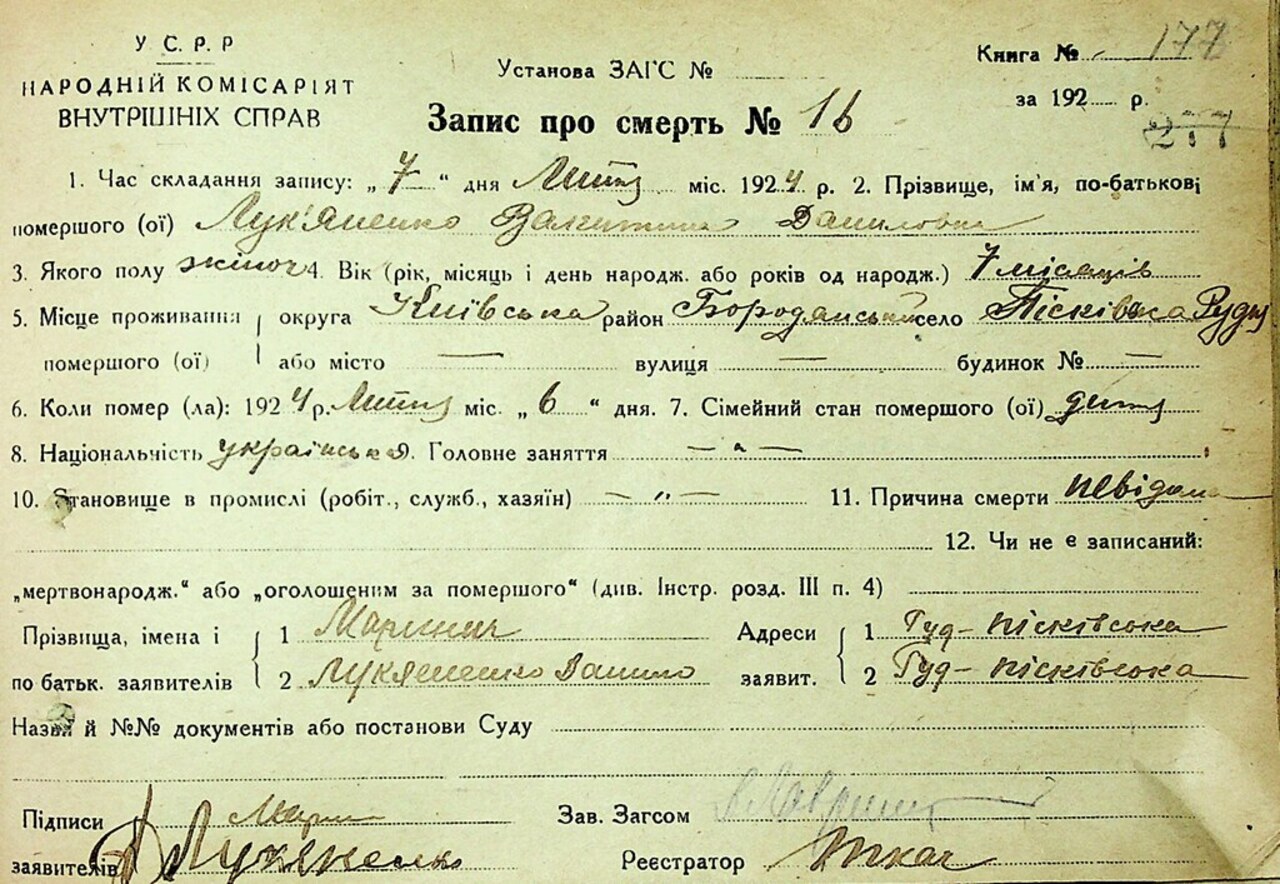 У С. Р. Р
НАРОДНІЙ КОМІСАРІЯТ
ВНУТРІШНІХ СПРАВ
Установа ЗАГС №
Книга № 177
за 192 р.
277
Запис про смерть № 16
1. Час складання запису: „7“ дня Лютня міс. 1924 р. 2. Прізвище, ім'я, по-батькові
помершого (ої) Лук'яненко Валентина Даниловна
3. Якого полу жіноч 4. Вік (рік, місяць і день народж. або років од народж.) 7 місяців
5. Місце проживання округа Київська район Бородянський село Пісківська Рудня
помершого (ої) або місто — вулиця — будинок № —
6. Коли помер (ла): 1924 р. Лютня міс. „6“ дня. 7. Сімейний стан помершого (ої) дитя
8. Національність українська 9. Головне заняття — „ —
10. Становище в промислі (робіт., служб., хазяїн) — „ — 11. Причина смерти невідома
12. Чи не є записаний:
„мертвонародж.“ або „оголошеним за помершого“ (див. Інстр. розд. III п. 4)
Прізвища, імена і 1 Маринич Адреси 1 Руд- пісківська
по батьк. заявителів 2 Лукяненко Данило заявит. 2 Руд- пісківська
Назви й №№ документів або постанови Суду
Підписи Зав. Загсом
заявителів Лукяненко Реєстратор Ткач